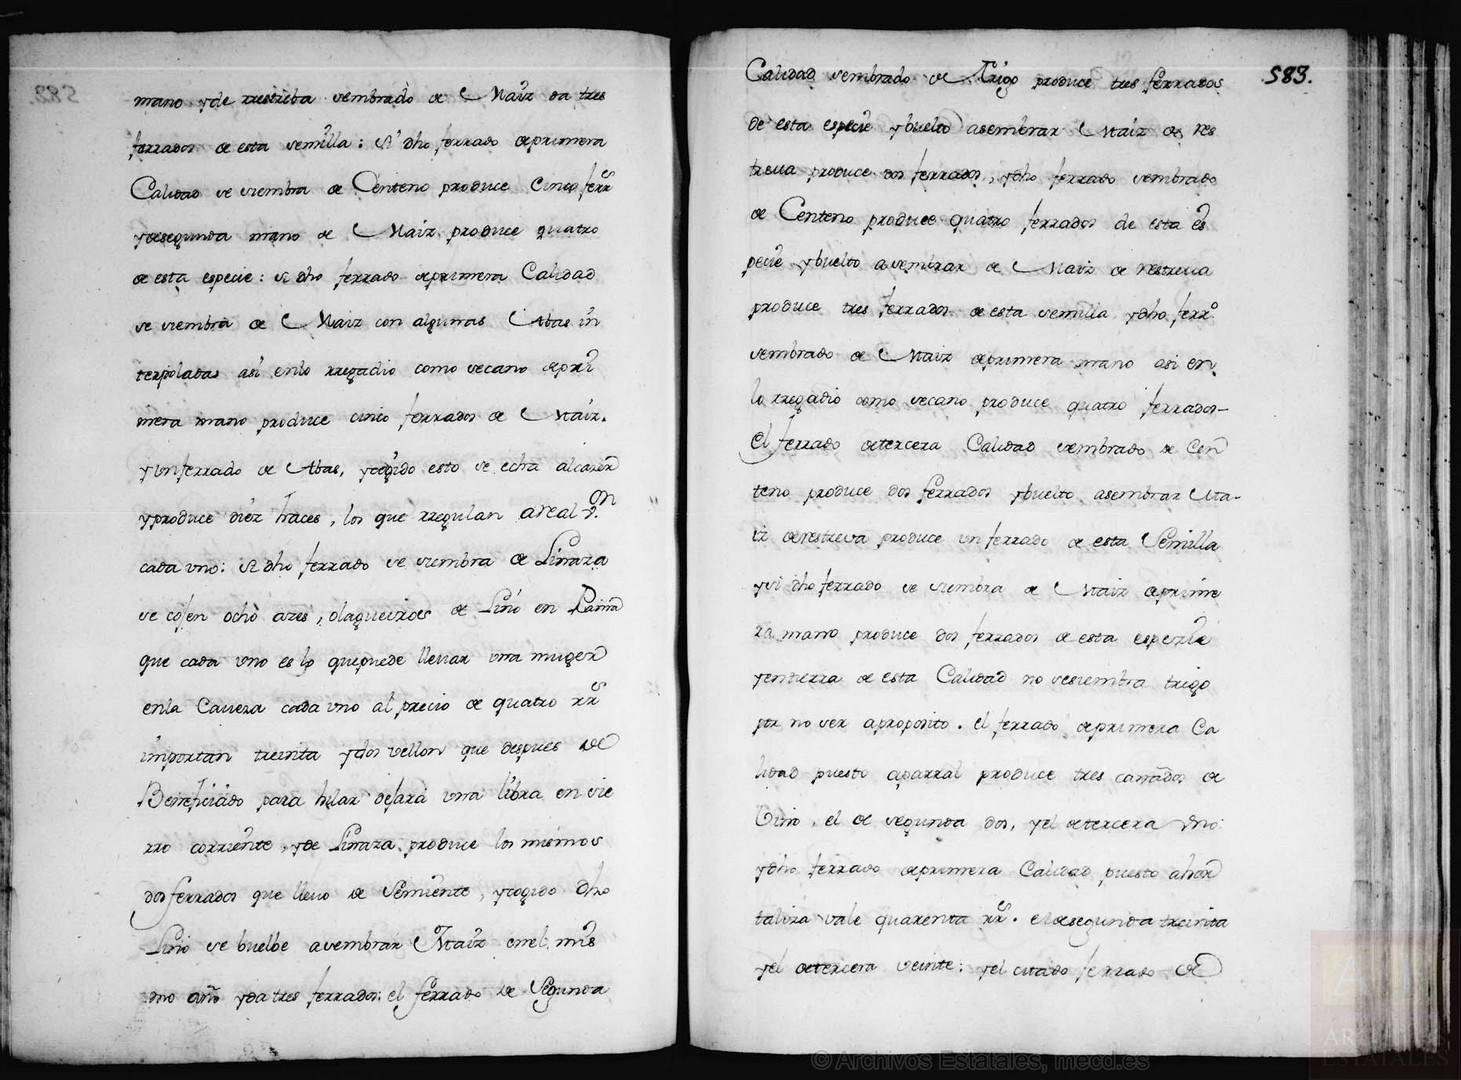 mano y de rrestreba sembrado de Maiz da tres
ferrados de esta semilla: si dho ferrado de primera
Calidad se siembra de Centeno produce Cinco ferrs
y de segunda mano de Maiz, produce quatro
de esta especie: si dho ferrado de primera Calidad
se siembra de Maiz con algunas Abas in
terpoladas asi enlo rregadio como secano de pri
mera mano produce cinco ferrados de Maiz.
y un ferrado de Abas, y cogido esto se echa alcazen
y produce diez haces, los que rregulan a real von
cada uno: si dho ferrado se siembra de Linaza
se cojen ocho azes, o lagueixoes de Lino en Rama
que cada uno es lo que puede llevar una muger
en la Caveza cada uno al precio de quatro rrs
importan treinta y dos vellon que despues de
Beneficiado para hilar dejara una libra en sie
rro corriente, y de Linaza produce los mismos
dos ferrados que llevo de Semiente, y cogido dho
Lino se buelbe a sembrar Maiz en el mis
mo año y da tres ferrados: el ferrado de Segunda
583.
Calidad sembrado de Trigo produce tres ferrados
de esta especie y buelto a sembrar Maiz de res
treva produce dos ferrados, y dho ferrado sembrado
de Centeno produce quatro ferrados de esta es
pecie y buelto a sembrar de Maiz de restreva
produce tres ferrados de esta semilla y dho ferro
sembrado de Maiz de primera mano asi en
lo rregadio como secano produce quatro ferrados-
el ferrado de tercera Calidad sembrado de Cen
teno produce dos ferrados y buelto a sembrar Ma-
iz de restreva produce un ferrado de esta Semilla
y si dho ferrado se siembra de Maiz de prime
ra mano produce dos ferrados de esta especie
y en tierra de esta Calidad no se siembra trigo
por no ser a proposito. el ferrado de primera Ca
lidad puesto aparral produce tres canados de
Vino, el de segunda dos, y el de tercera uno:
y dho ferrado de primera Calidad puesto a hor
taliza vale quarenta rrs. el de segunda treinta
y el de tercera veinte: y el citado ferrado de
© Archivos Estatales, mecd.es
ARCHIVOS
ESTATALES